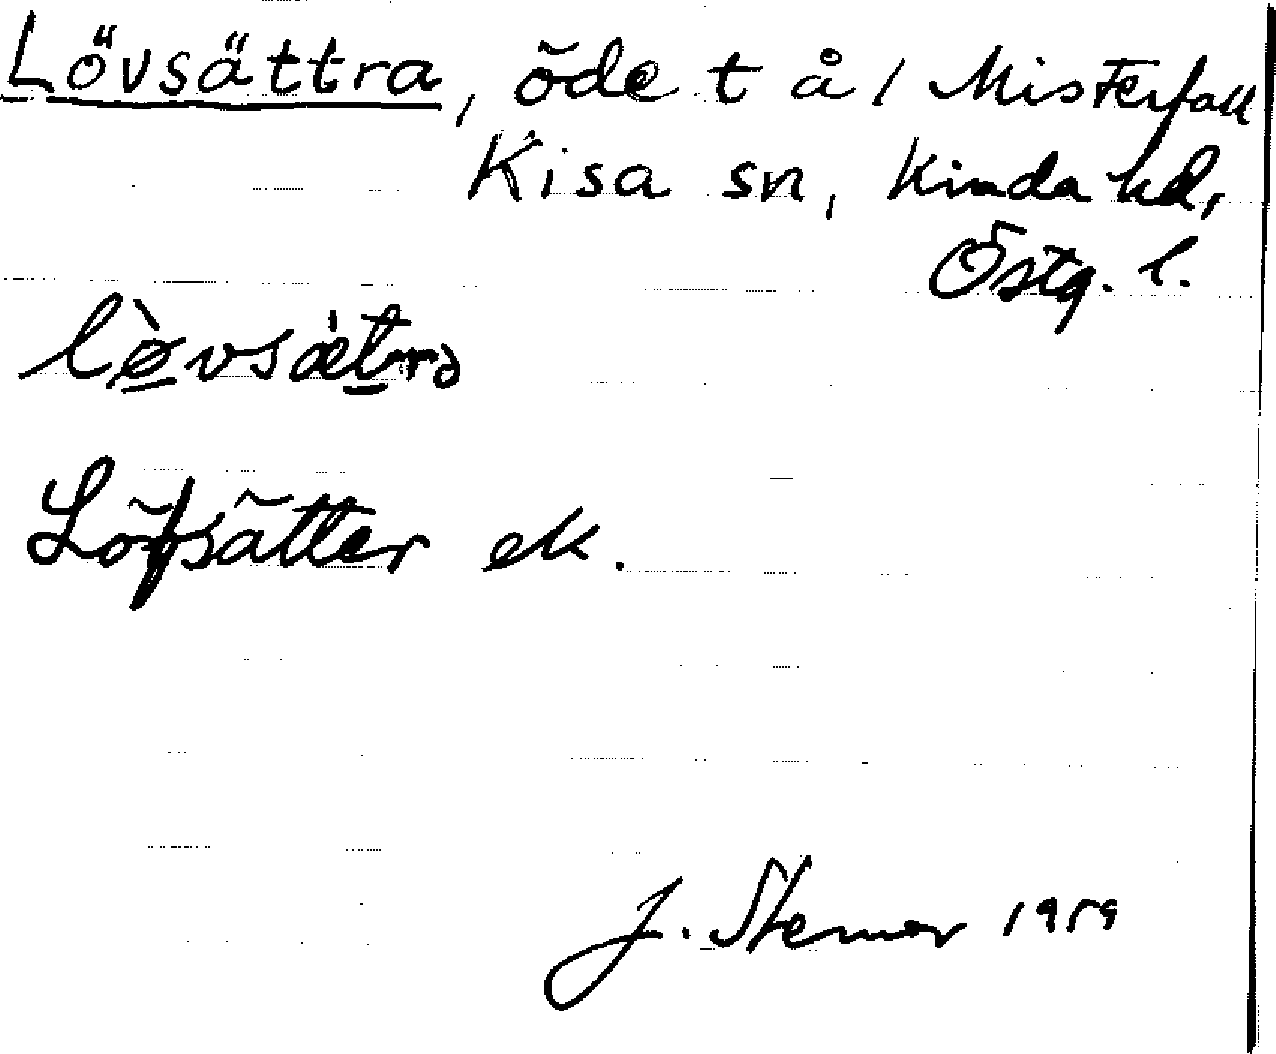 Lövsättra, öde t å / Misterfall
Kisa sn, Kinda hd,
Östg. l.
lø̀vsætrə
Löfsätter ek.
J. Sterner 1959